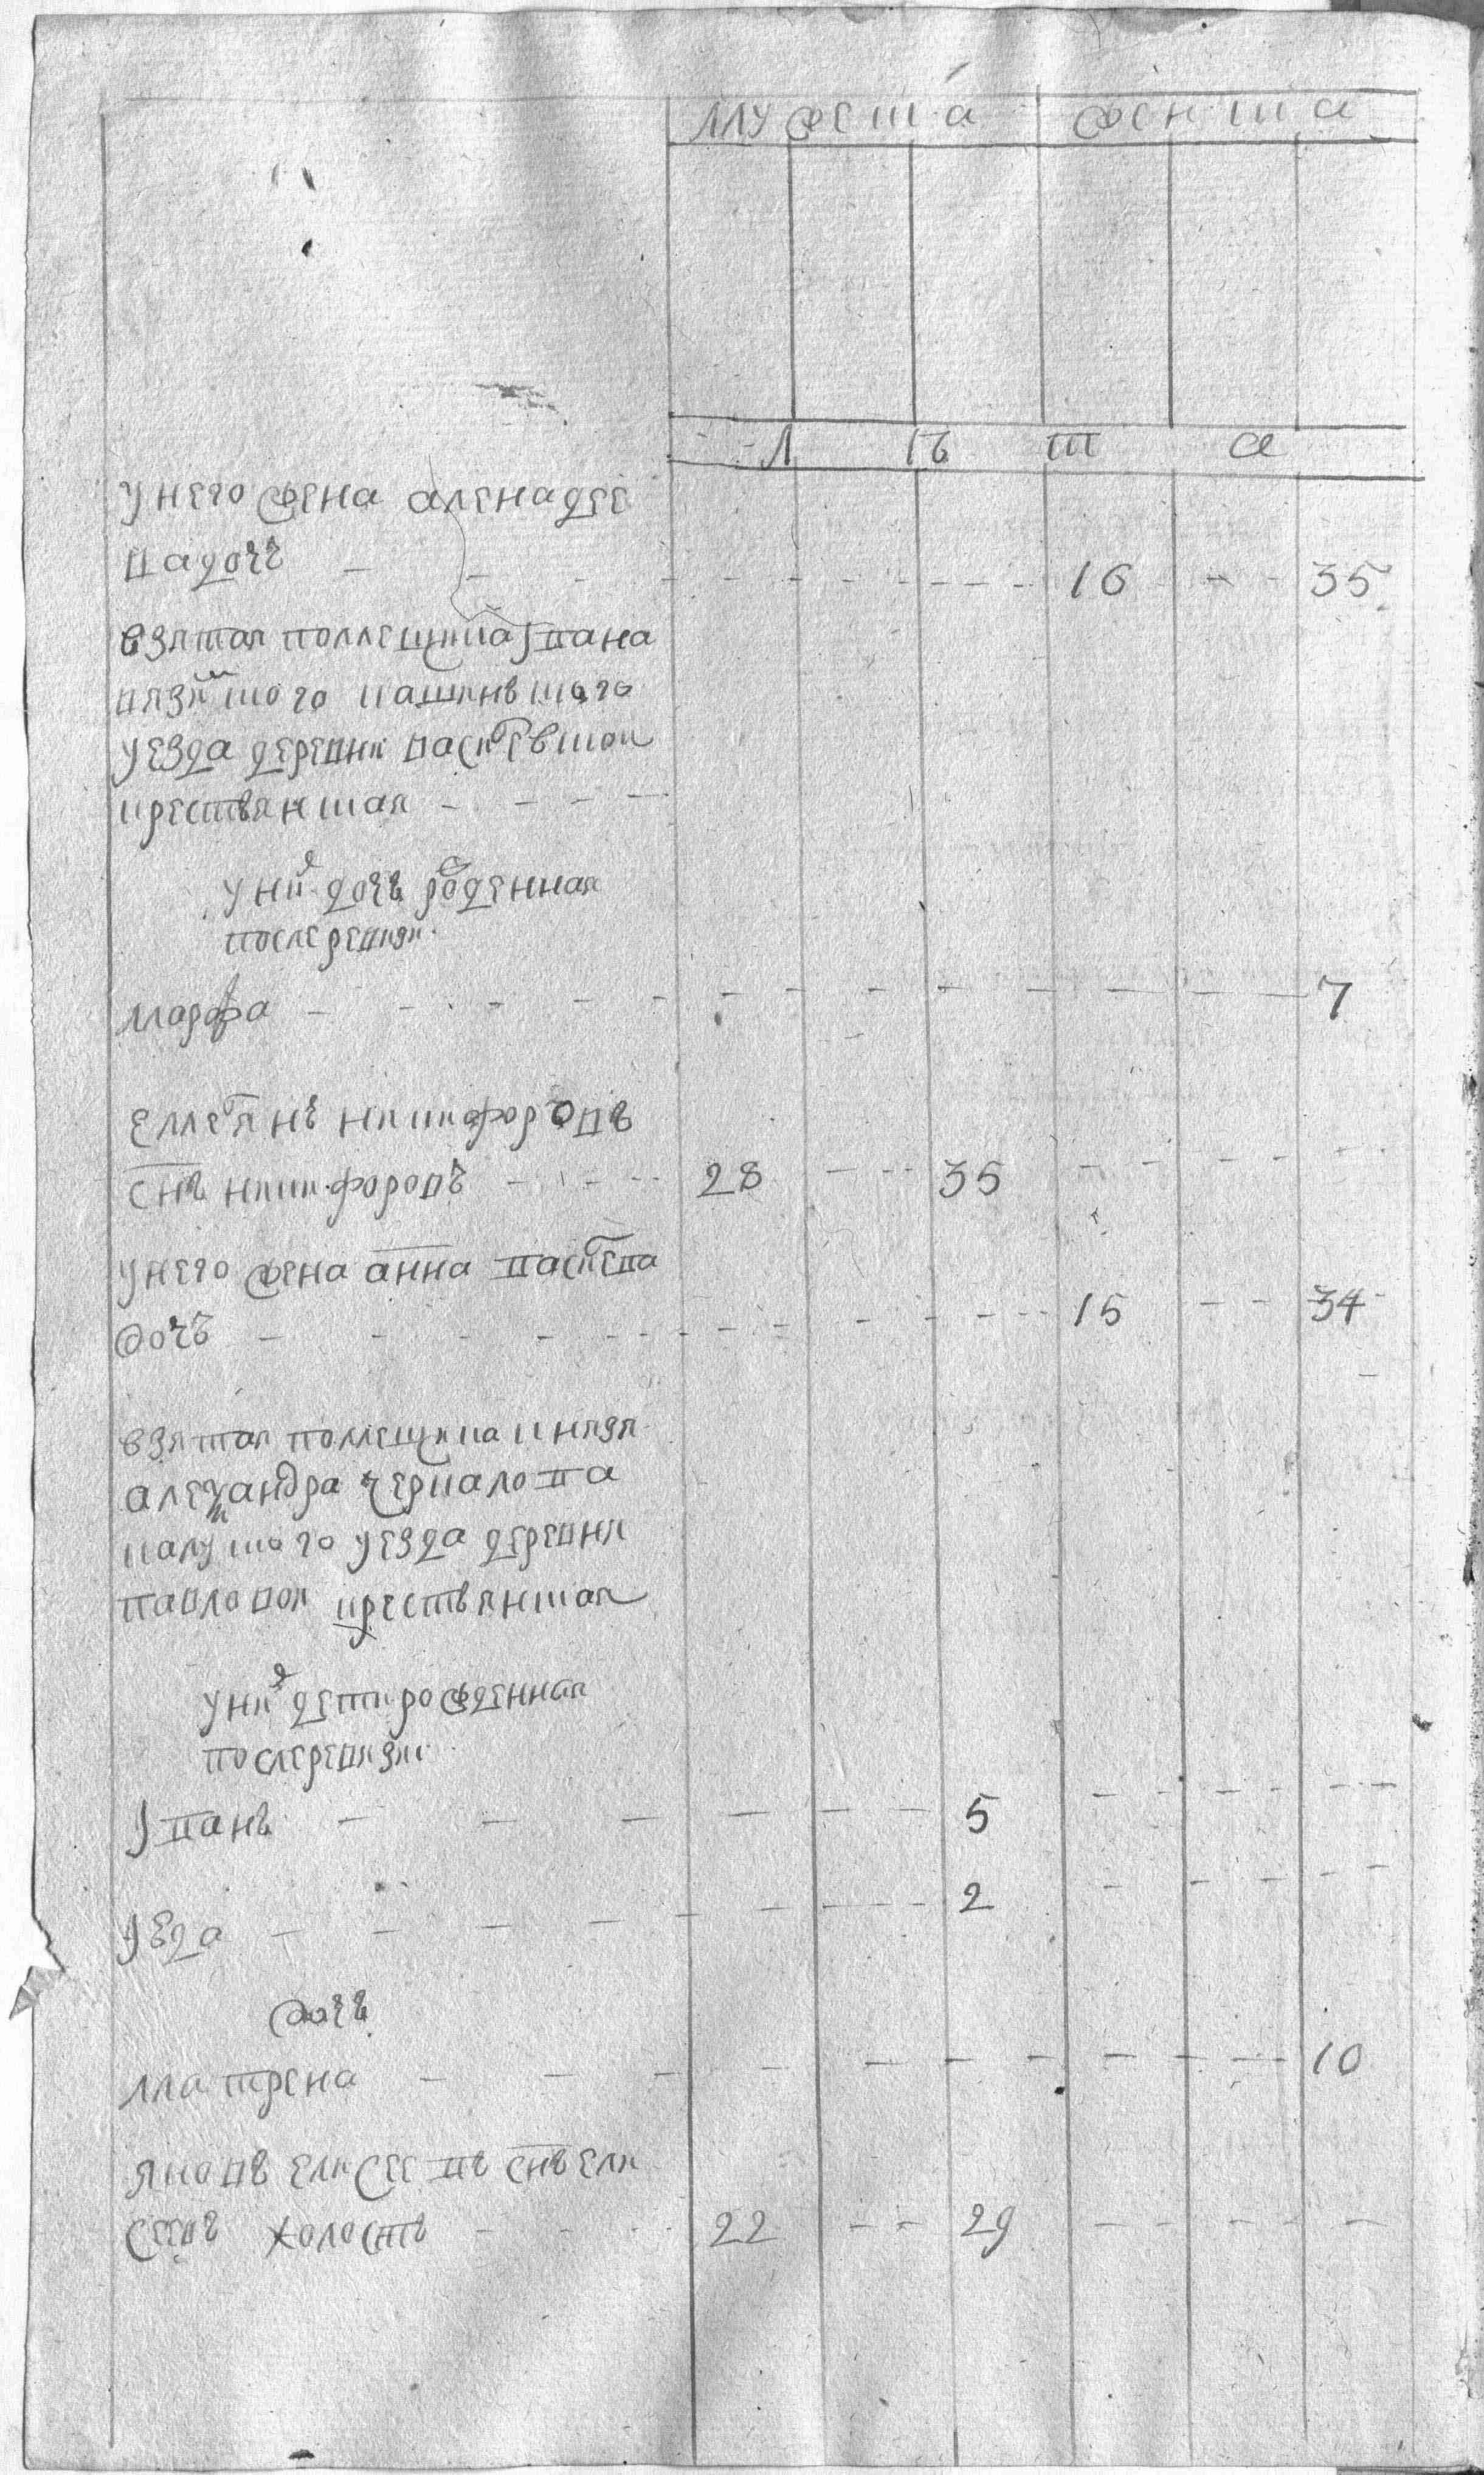 мужеска женска
л ѣ т а
у него жена алена дее
ва дочь 16 35
взятая помещика ивана
вяземского кашинского
уезда деревни васильевской
крестьянская
у них дочь рожденная
после ревизии
марфа 7
емельянъ никифоровъ
снъ никифоровъ 28 35
у него жена анна васильева
дочь 15 34
взятая помещика князя
александра черкалова
калужского уезда деревни
павловой крестьянская
у них дети рожденная
после ревизии
иванъ 5
2
дочь
матрена 10
яковъ елисеевъ снъ ели
сеевъ холостъ 22 29